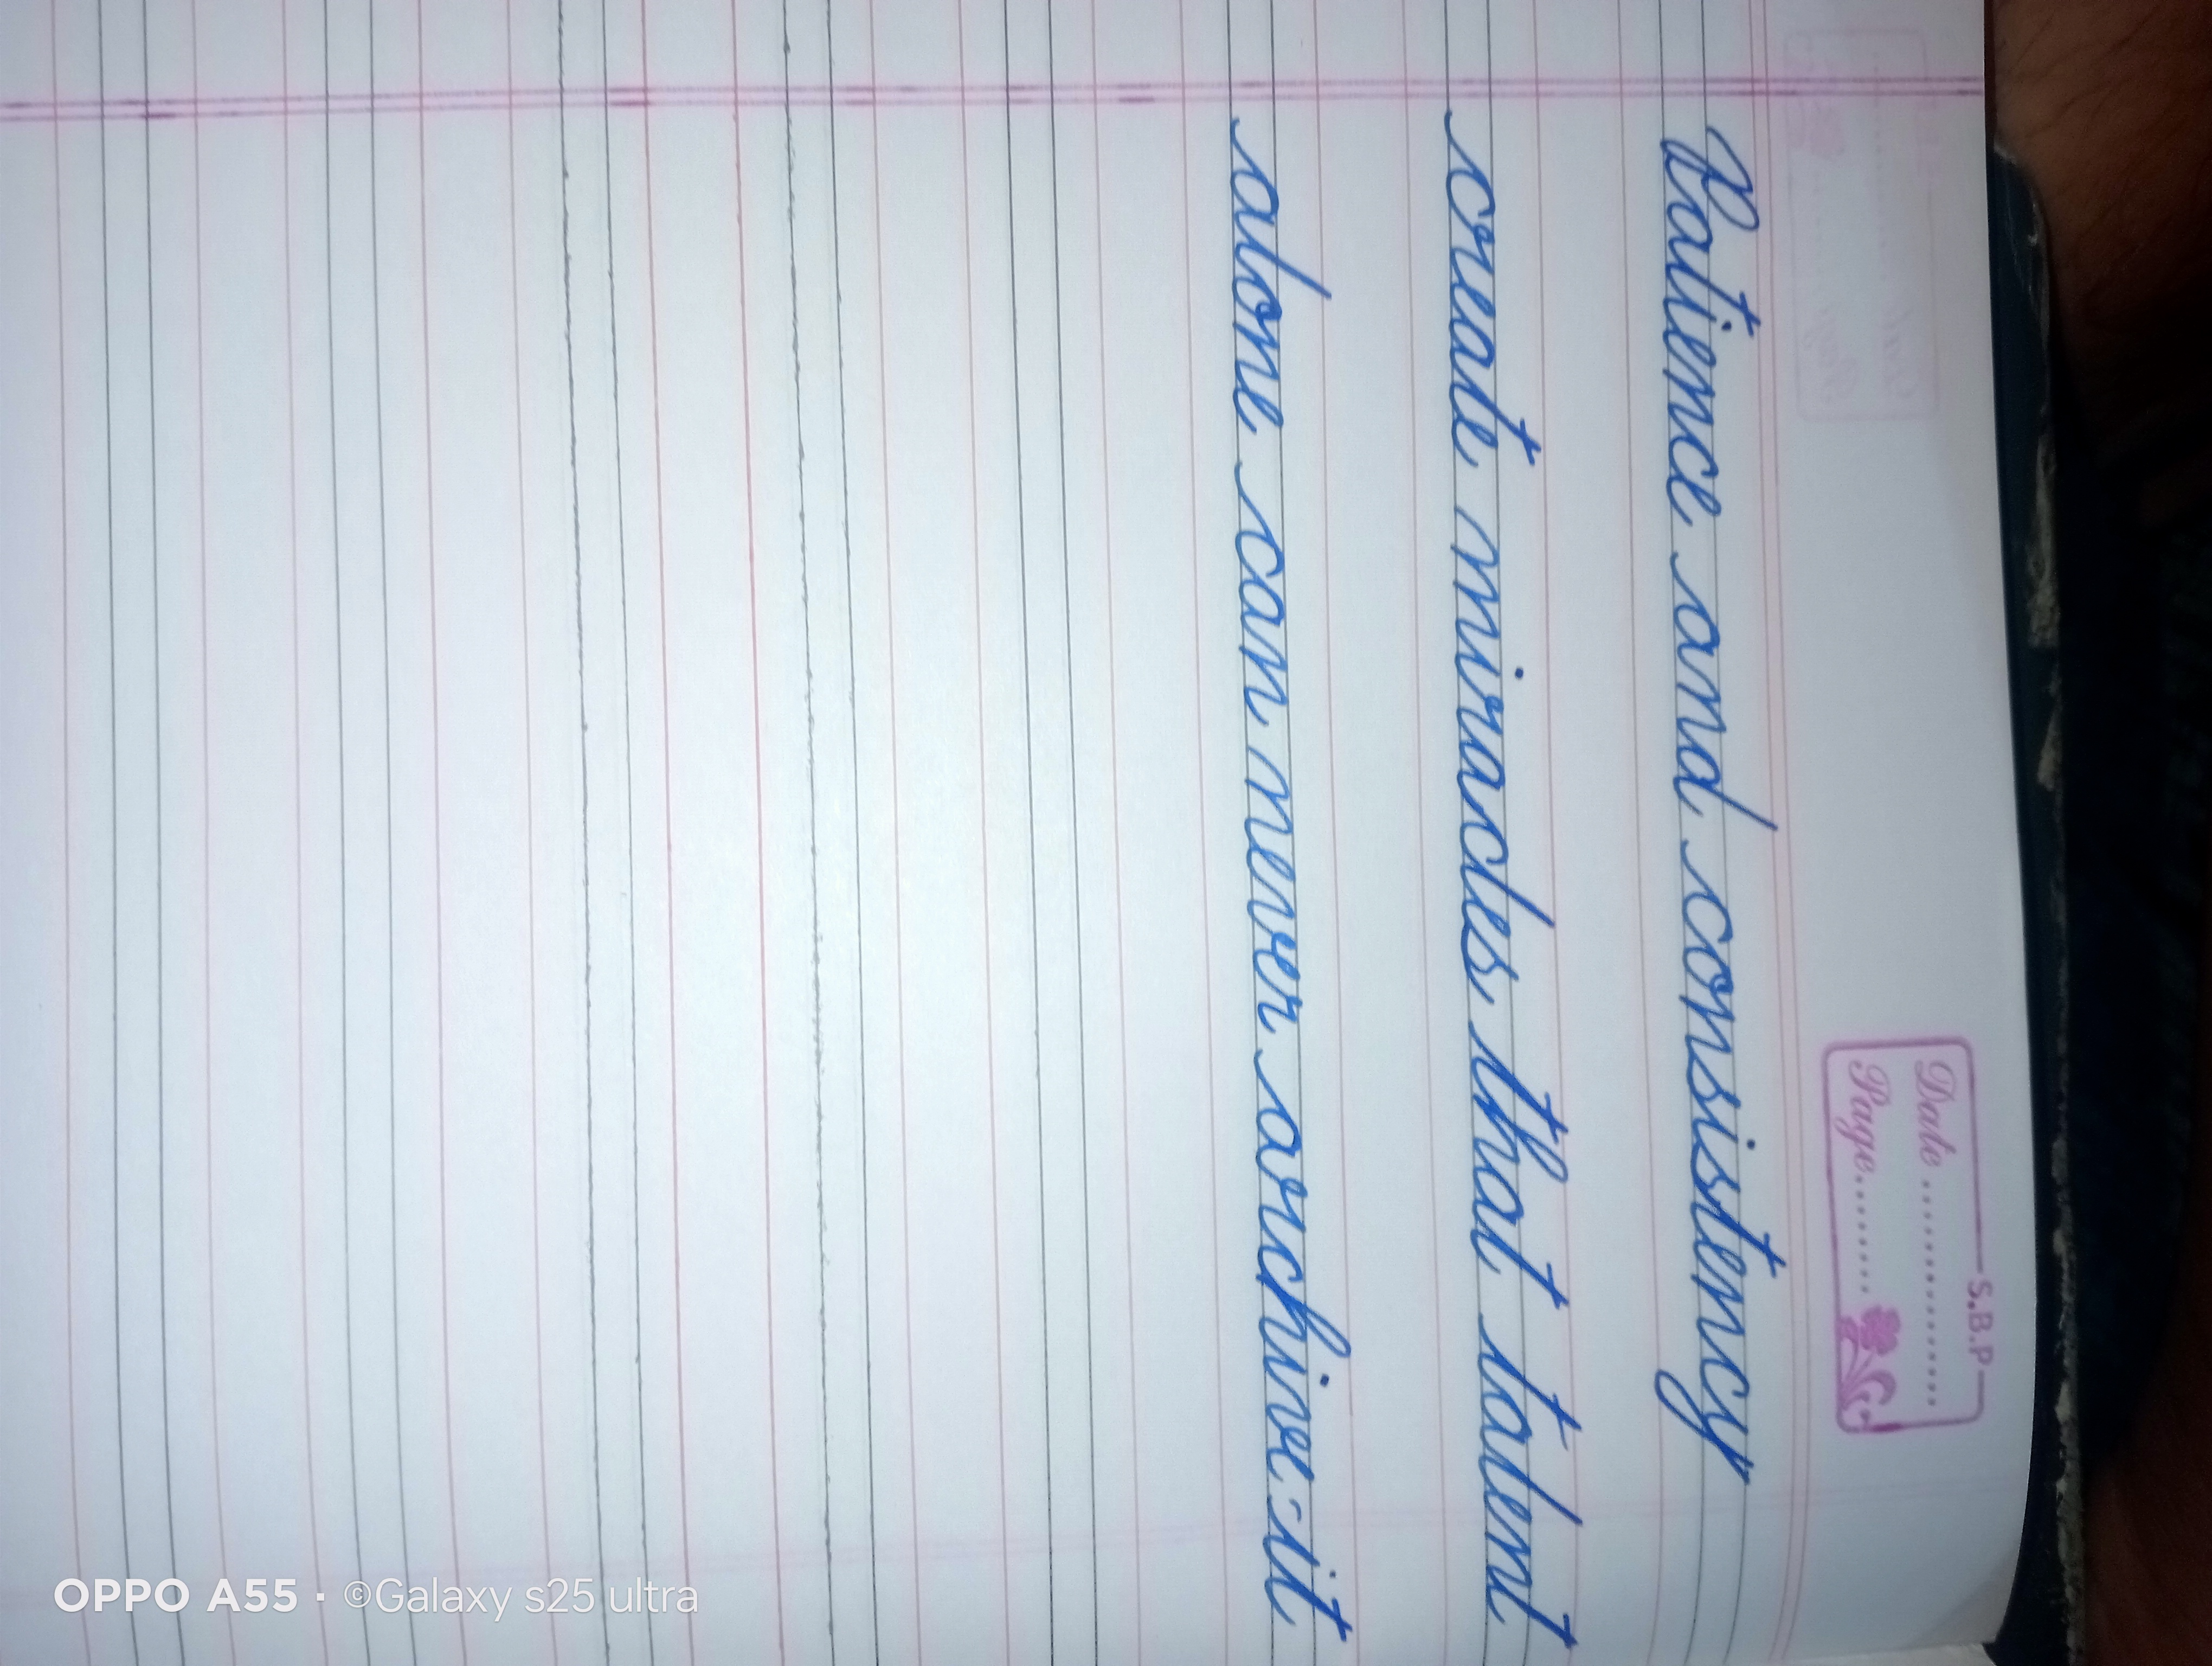 S.B.P
Date ................
Page..........
Patience and consistency
create miracles that talent
alone can never archive-it
OPPO A55 · ©Galaxy s25 ultra